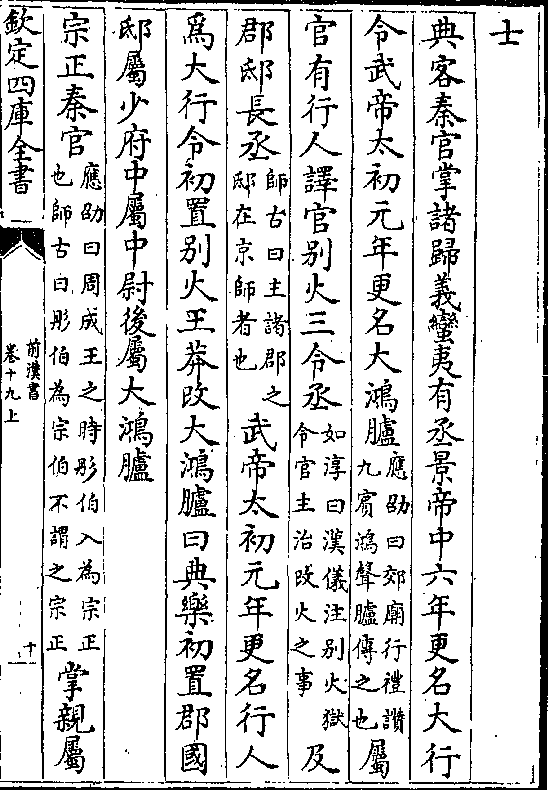 士
典客秦官掌諸歸義蠻夷有丞景帝中六年更名大行
令武帝太初元年更名大鴻臚應劭曰郊廟行禮讚九賓鴻聲臚傳之也屬
官有行人譯官别火三令丞如淳曰漢儀注别火獄令官主治改火之事及
郡邸長丞師古曰主諸郡之邸在京師者也武帝太初元年更名行人
爲大行令初置别火王莽改大鴻臚曰典樂初置郡國
邸屬少府中屬中尉後屬大鴻臚
宗正秦官應劭曰周成王之時彤伯入為宗正也師古曰彤伯為宗伯不謂之宗正掌親屬
欽定四庫全書
前漢書
卷十九上
十